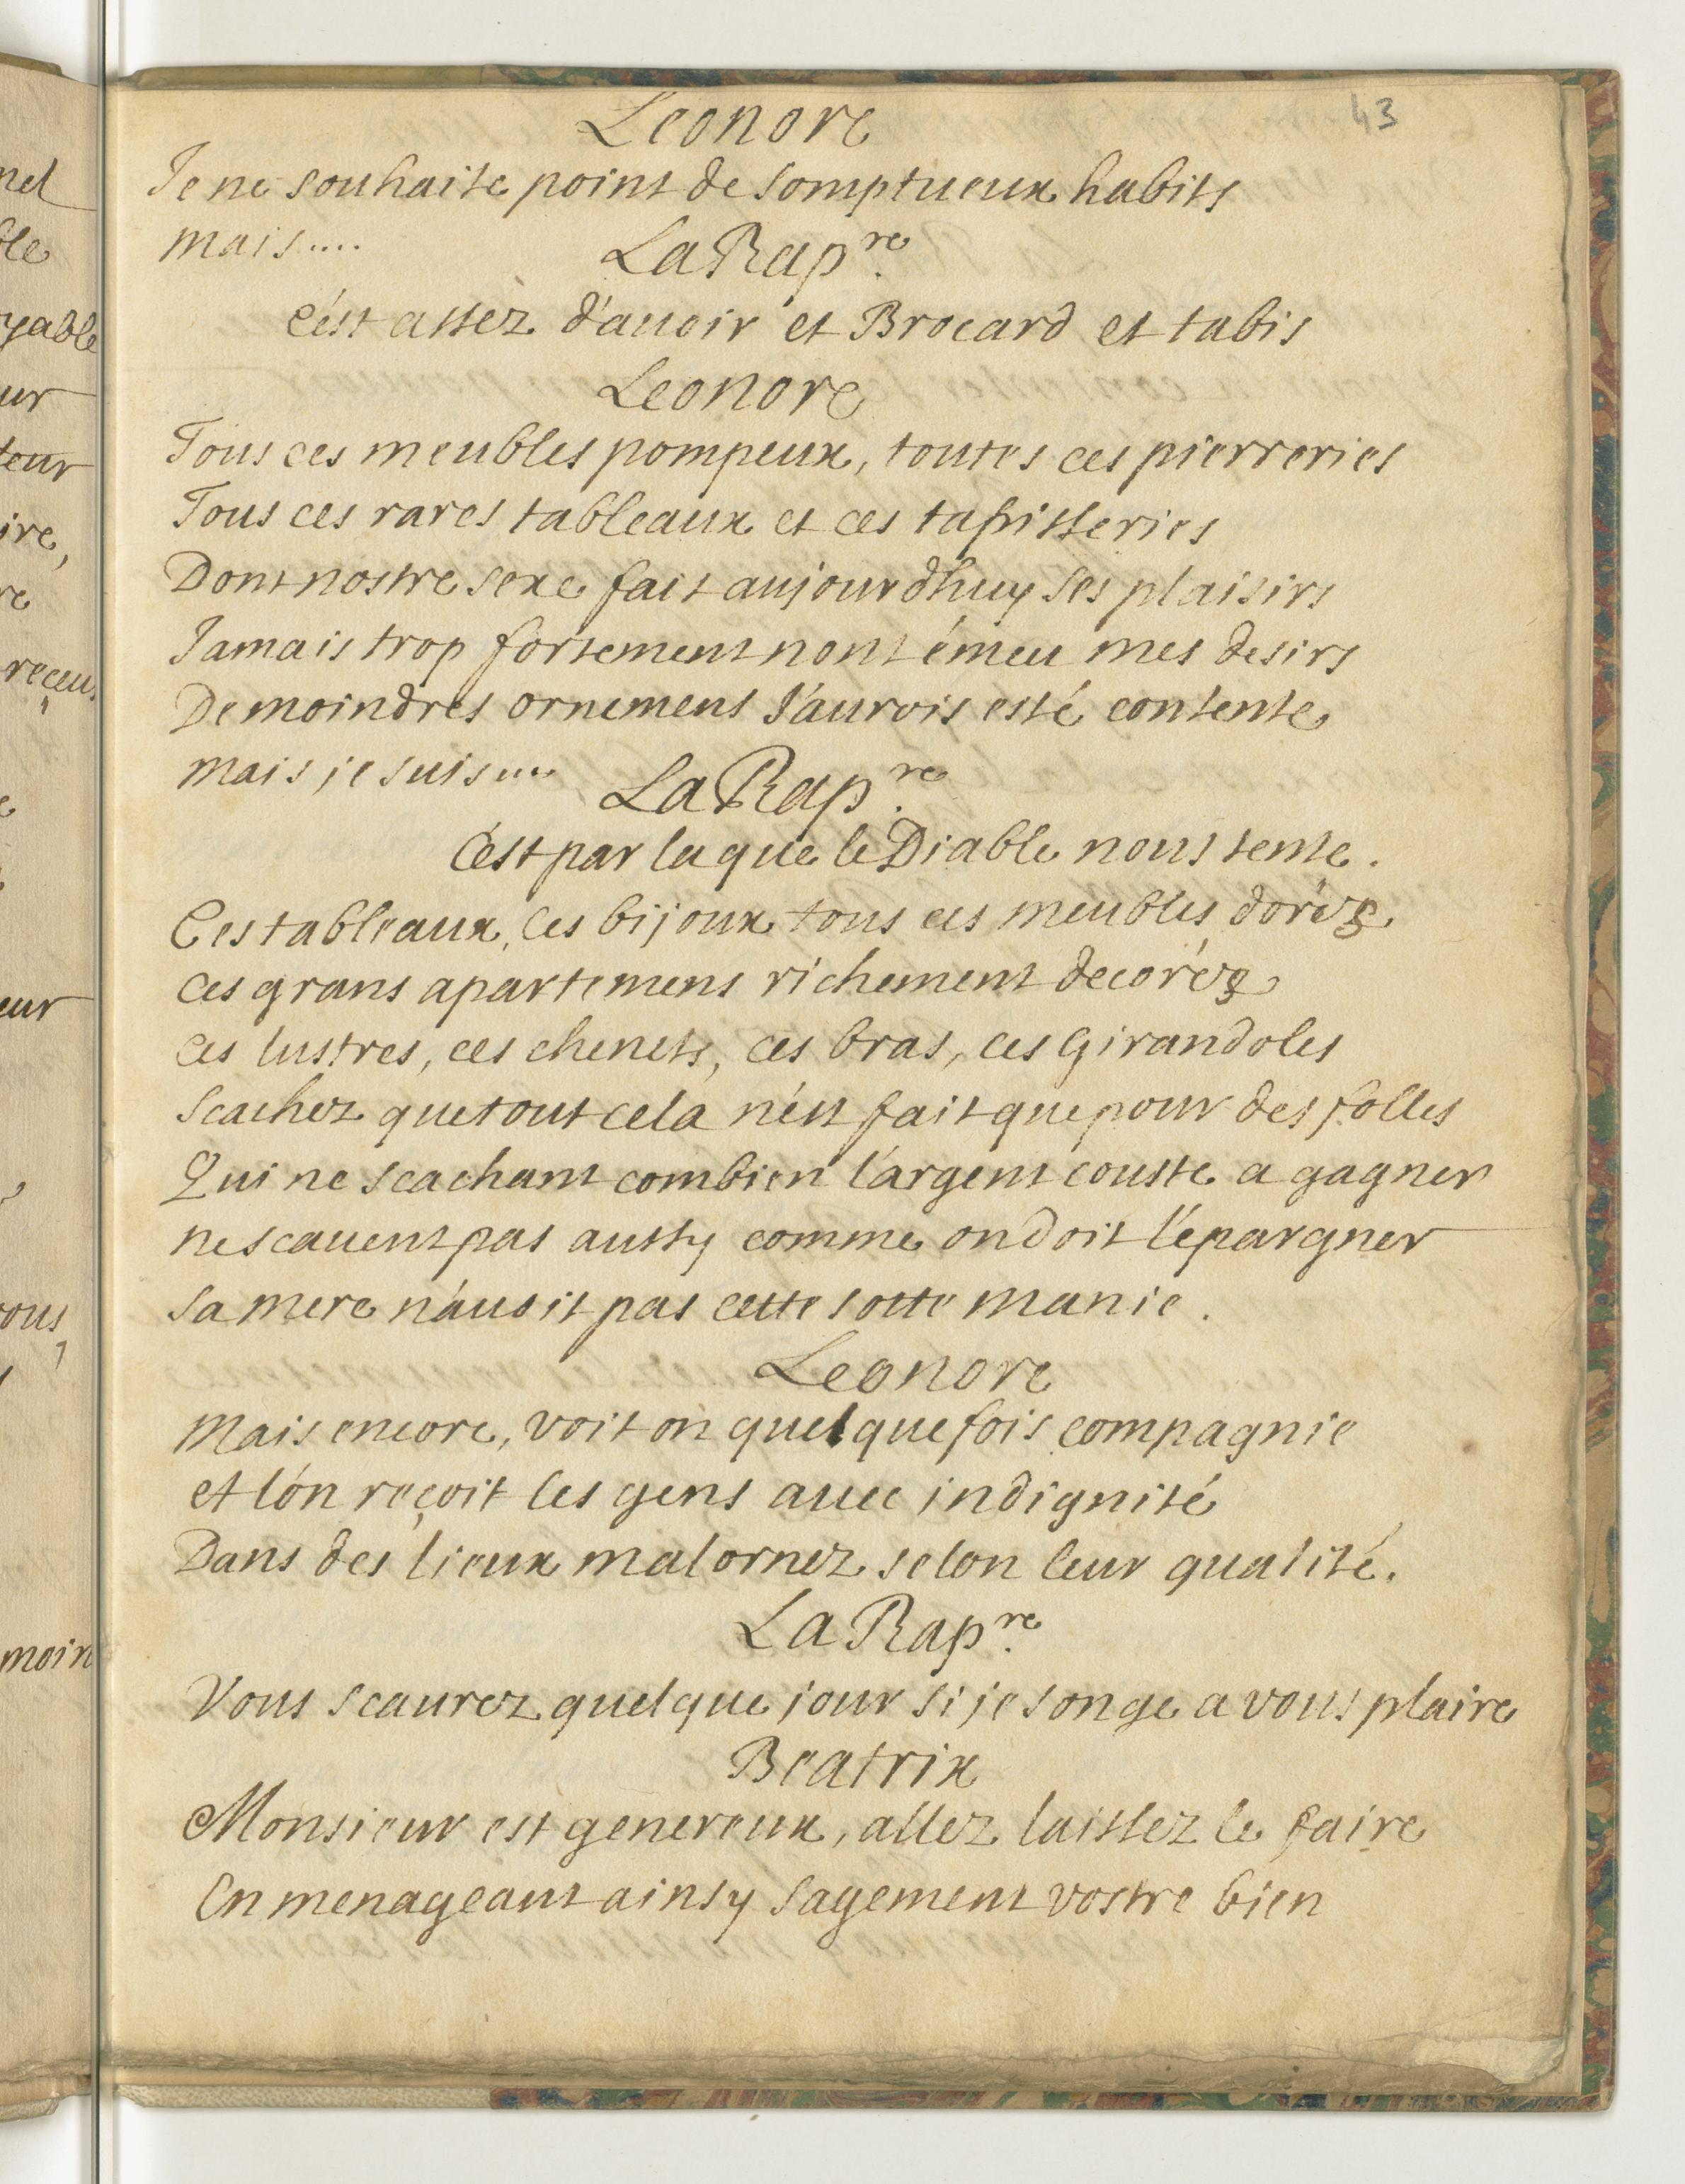 43
Leonore
Je ne souhaite point de somptueux habits
mais....
La Rap.re
C'est assez d'auoir et Brocard et tabis
Leonore
Tous ces meubles pompeux, toutes ces pierreries
Tous ces rares tableaux et ces tapisseries
Dont nostre sexe fait aujourdhuy ses plaisirs
Jamais trop fortement nont émeu mes desirs
De moindres ornemens J'aurois esté contente
mais je suis....
La Rap.re
C'est par la que le Diable nous tente.
Ces tableaux, ces bijoux tous ces meubles dorez
ces grans apartemens richement decorez
ces lustres, ces chenets, ces bras, ces Girandoles
scachez que tout cela n'est fait que pour des folles
Qui ne scachant combien l'argent couste a gagner
ne scauent pas aussy comme on doit l'épargner
sa mere n'auoit pas cette sotte manie.
Leonore
mais encore, voit on quelque fois compagnie
et l'on reçoit les gens auec indignité
Dans des lieux mal ornez selon leur qualité.
La Rap.re
Vous scaurez quelque jour si je songe a vous plaire
Beatrix
Monsieur est genereux, allez laissez le faire
En menageant ainsy sagement vostre bien
nel
ble
yable
ur
teur
ire,
re
reçeu
eur
vous,
moin